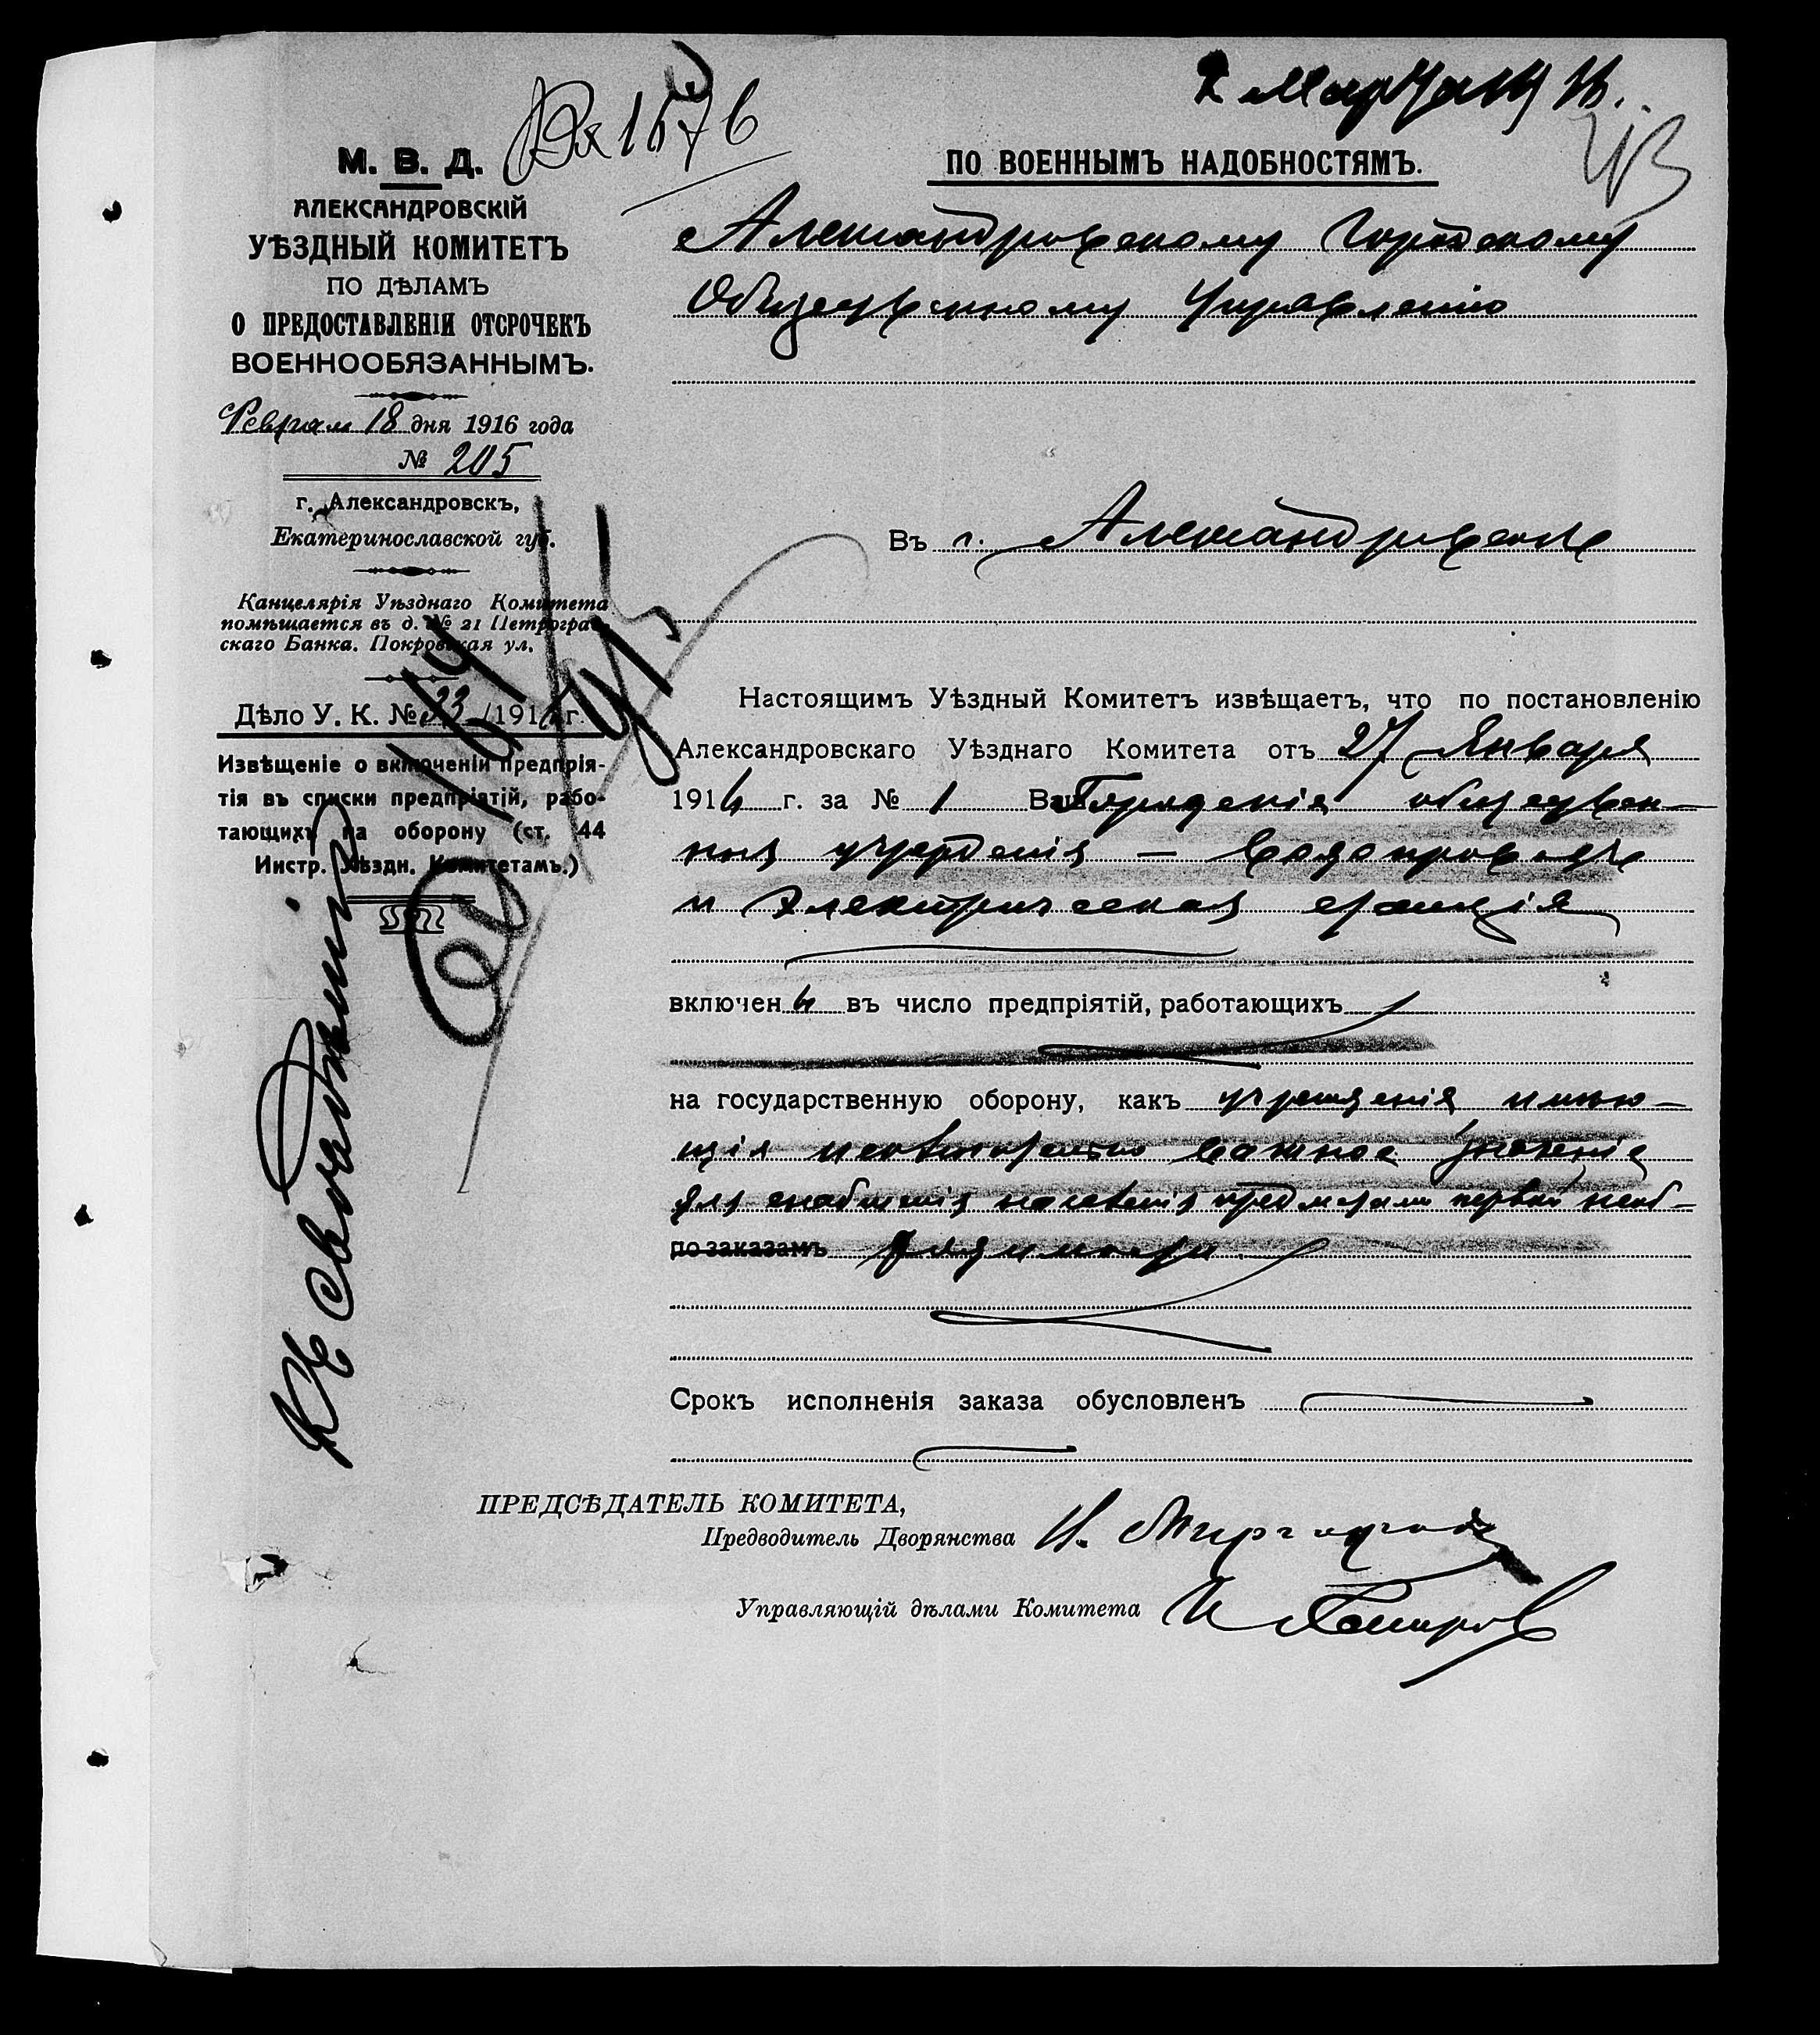 2 Марта 1916.
Вх 1576
43
М. В. Д.
АЛЕКСАНДРОВСКІЙ
УѢЗДНЫЙ КОМИТЕТЪ
ПО ДѢЛАМЪ
О ПРЕДОСТАВЛЕНІИ ОТСРОЧЕКЪ
ВОЕННООБЯЗАННЫМЪ.
Февраля 18 дня 1916 года
№ 205
г. Александровскъ,
Екатеринославской губ.
Канцелярія Уѣзднаго Комитета
помѣщается въ д. № 21 Петроград-
скаго Банка. Покровская ул.
Дѣло У. К. № 33 /1916 г.
Извѣщеніе о включеніи предпрія-
тія въ списки предпріятій, рабо-
тающихъ на оборону (ст. 44
Инстр. Уѣздн. Комитетамъ.)
ПО ВОЕННЫМЪ НАДОБНОСТЯМЪ.
Александровскому Городскому
Общественному Управленію
Въ г. Александровскѣ
Настоящимъ Уѣздный Комитетъ извѣщаетъ, что по постановленію
Александровскаго Уѣзднаго Комитета отъ 27 Января
1916 г. за № 1 обществен-
ныя учрежденія — водопроводъ
и Электрическая станція
включены въ число предпріятій, работающихъ
на государственную оборону, какъ учрежденія имѣю-
щія важное значеніе
для снабженія населенія предметами первой необ-
по заказамъ ходимости.
Срокъ исполненія заказа обусловленъ
ПРЕДСѢДАТЕЛЬ КОМИТЕТА,
Предводитель Дворянства
Управляющій дѣлами Комитета